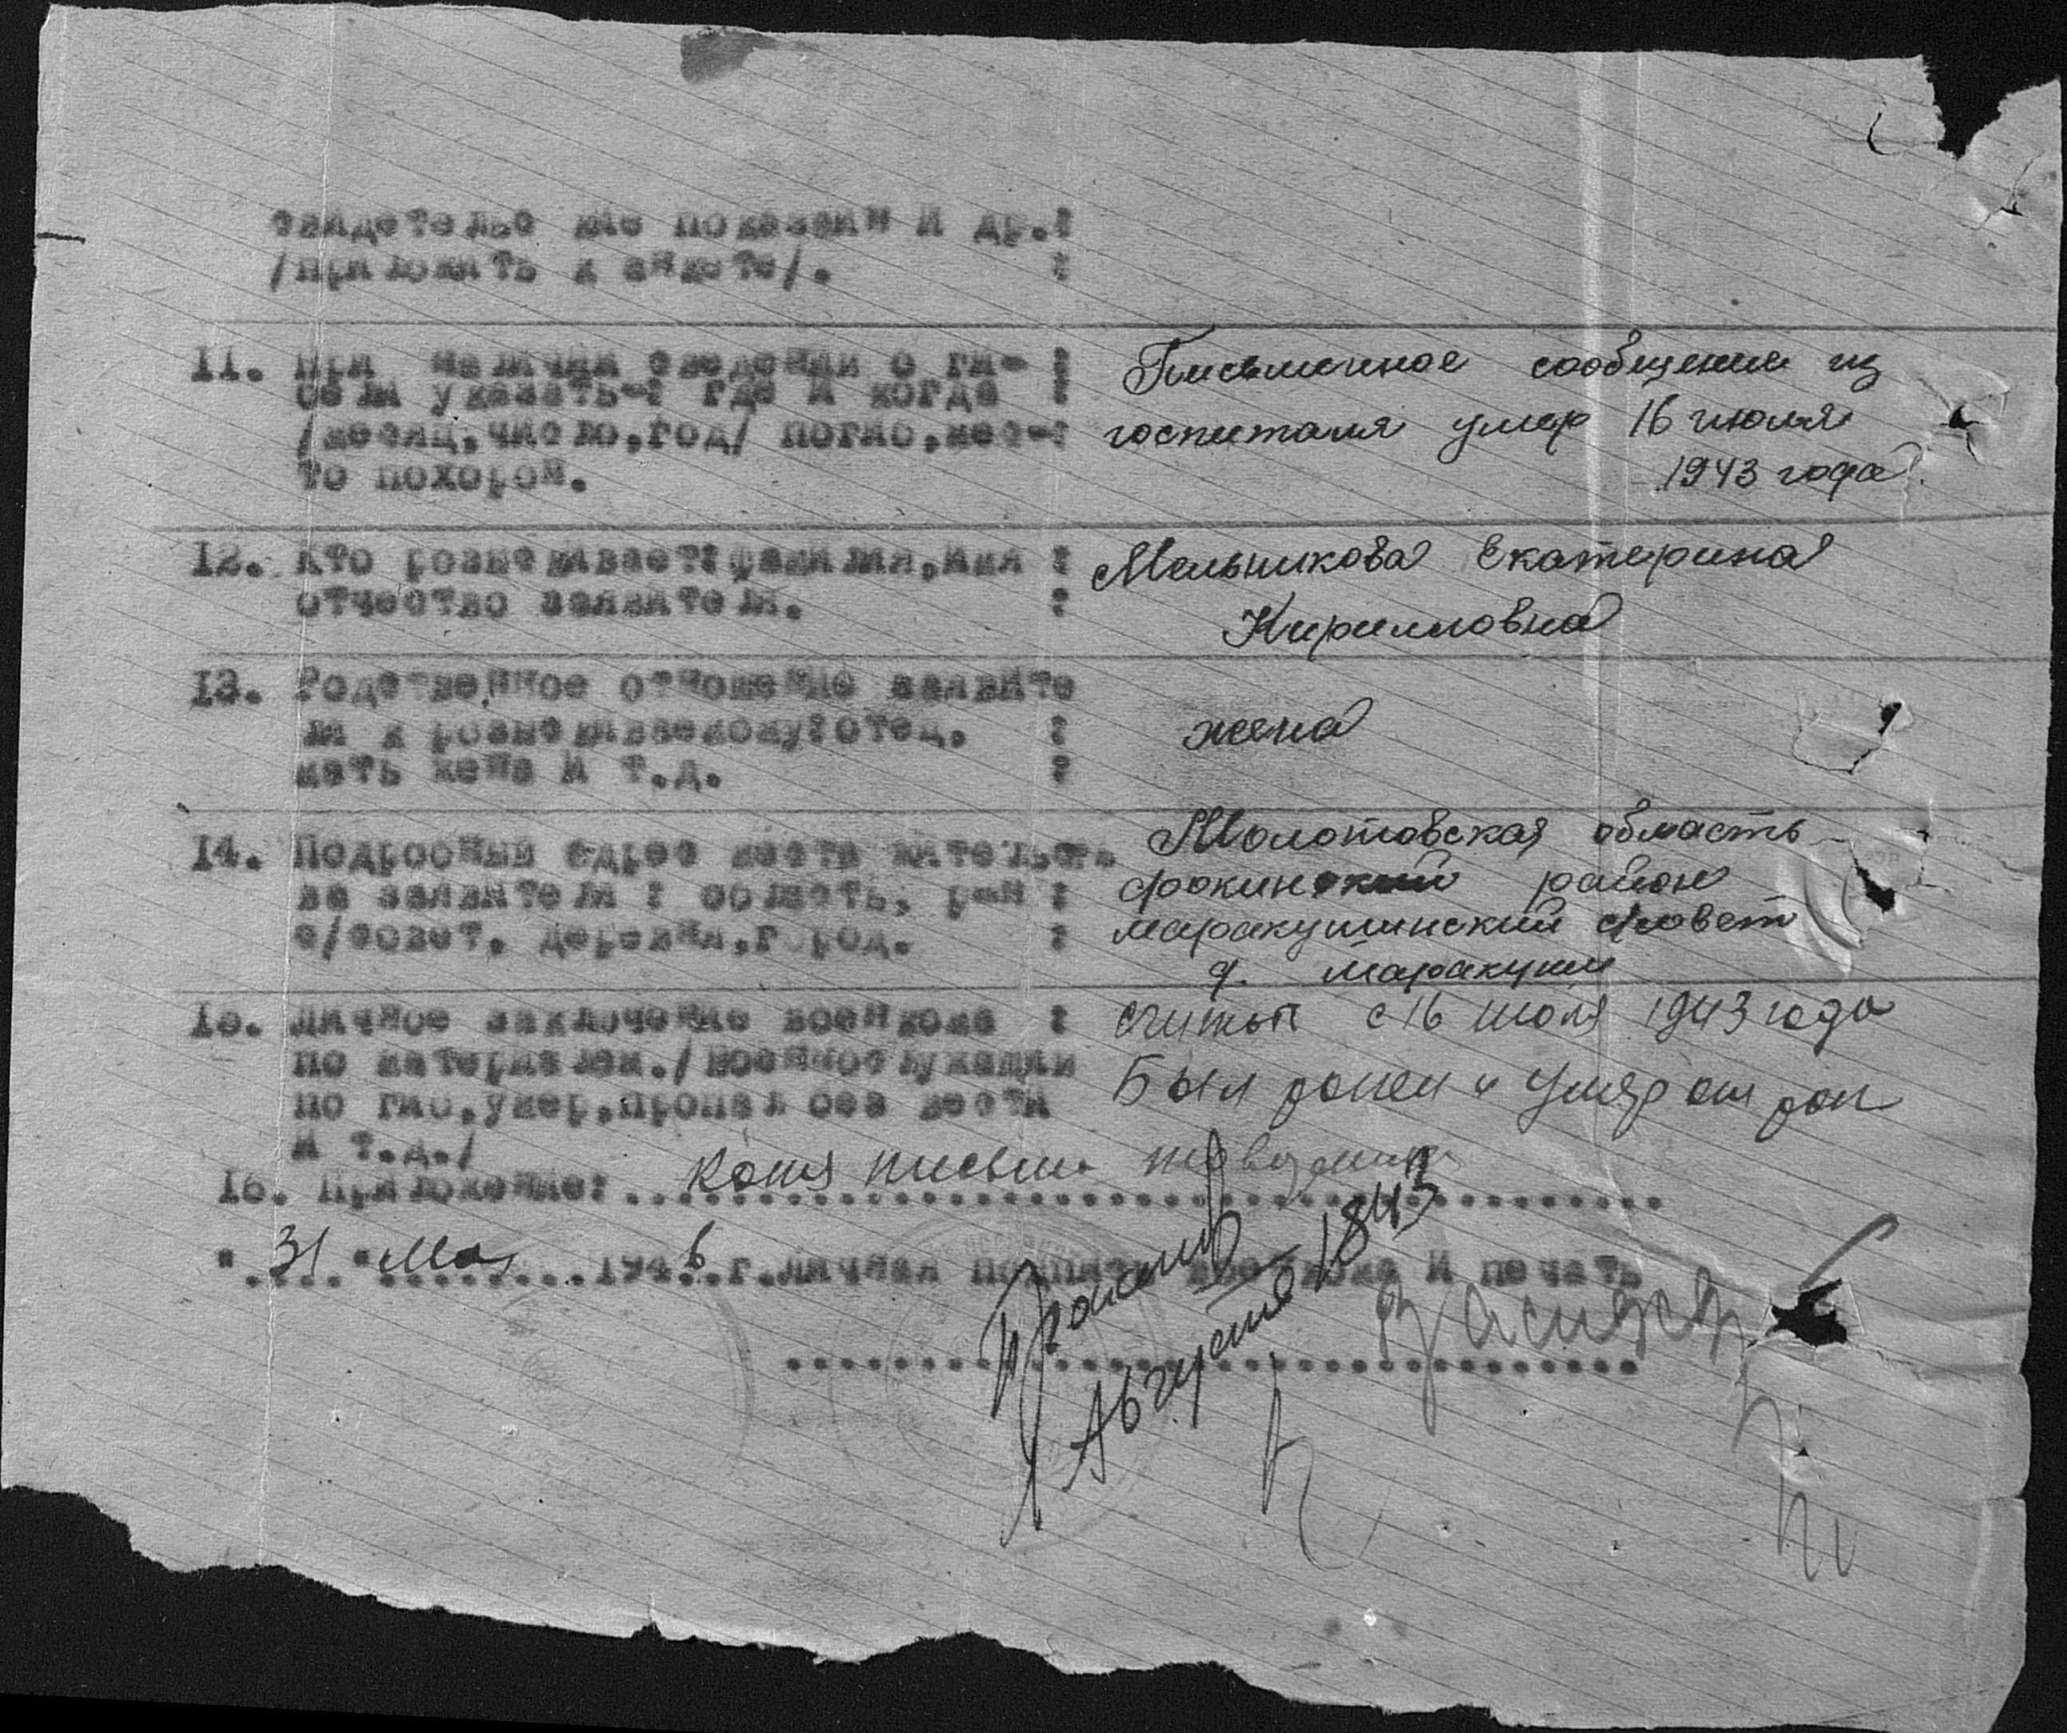 свидетельс кие показани и др.:
/приложить к анкете/. :
11. При наличии сведении о ги- :
бели указать-: где и когда :
/месяц,число,год/ погиб,мес-:
то похорон.
Письменное сообщение из
госпиталя умер 16 июля
1943 года.
12. Кто розыскивает:фамилия,имя :
отчество заявителя. :
Мельникова Екатерина
Кирилловна
13. Родственное отношение заявите
ля к розыскиваемому:отец, :
мать жена и т.д. :
жена
14. Подробный адрес места жительст
ва заявителя : область, р-н :
с/совет, деревня,город. :
Молотовская область
Фокинский район
маракушинский с/совет
д. Маракуши
15. Личное заключение военкома :
по материалам./военнослужащи
по гиб,умер,пропал без вести
и т.д./
считать с 16 июля 1943 года
Был ранен и умер от ран
16. Приложение: копя письма
"31" Мая 1946 г.личная подпись военкома и печать
Пропал
Август 1943